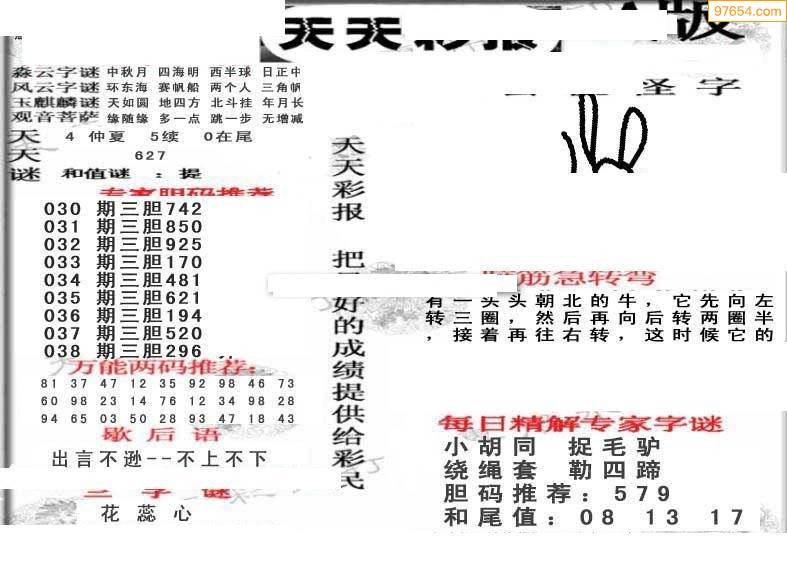 97654.com
版
天天彩报
圣字
淼云字谜 中秋月 四海明 西半球 日正中
风云字谜 环东海 赛帆船 两个人 三角帆
玉麒麟谜 天如圆 地四方 北斗挂 年月长
观音菩萨 缘随缘 多一点 跳一步 无增减
天 4 仲夏 5续 0在尾
天 627
谜 和值谜 : 提
专家胆码推荐
030 期三胆742
031 期三胆850
032 期三胆925
033 期三胆170
034 期三胆481
035 期三胆621
036 期三胆194
037 期三胆520
038 期三胆296
万能两码推荐:
81 37 47 12 35 92 98 46 73
60 98 23 14 76 12 34 98 28
94 65 03 50 28 93 47 18 43
歇后语
出言不逊--不上不下
三字谜
花蕊心
天天彩报 把 好的成绩提供给彩民
筋急转弯
有一头头朝北的牛，它先向左
转三圈，然后再向后转两圈半
，接着再往右转，这时候它的
每日精解专家字谜
小胡同 捉毛驴
绕绳套 勒四蹄
胆码推荐: 579
和尾值: 08 13 17